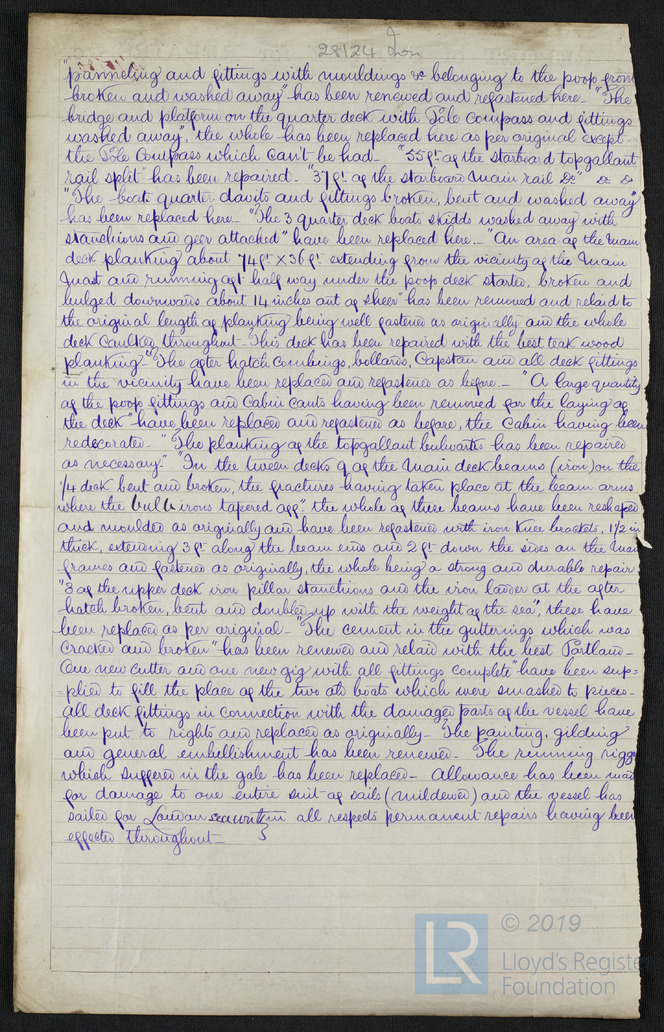 28124 Iron
"panneling and fittings with mouldings &c belonging to the poop front
broken and washed away" has been renewed and refastened here - "The
bridge and platform on the quarter deck with Pole Compass and fittings
washed away", the whole has been replaced here as per original except
the Pole Compass which can't be had - "55ft of the starboard topgallant
rail split" has been repaired - "37ft of the starboard Main rail &c" &c &c
"The boats quarter davits and fittings broken, bent and washed away"
has been replaced here - "The 3 quarter deck boats skidds washed away with
stanchions and gear attached" have been replaced here - "An area of the main
deck planking about 74ft x 36ft extending from the vicinity of the Main
Mast and running aft half way under the poop deck started, broken and
bulged downwards about 14 inches out of sheer" has been renewed and relaid to
the original length of planking being well fastened as originally and the whole
deck caulked throughout - This deck has been repaired with the best teak wood
planking - "The after hatch Combings, bollards, Capstan and all deck fittings
in the vicinity have been replaced and refastened as before - "A large quantity
of the poop fittings and Cabin Cants having been removed for the laying of
the deck" have been replaced and refastened as before, the Cabin having been
redecorated - "The planking of the topgallant bulwarks has been repaired
as necessary." "In the tween decks 9 of the Main deck beams (iron) on the
1/4 deck bent and broken, the fractures having taken place at the beam arms
where the bulb irons tapered off" the whole of these beams have been reshaped
and moulded as originally and have been refastened with iron Knee brackets, 1/2 in
thick, extending 3ft along the beam ends and 2ft down the sides on the Main
frames and fastened as originally, the whole being a strong and durable repair
"3 of the upper deck iron pillar stanchions and the iron ladder at the after
hatch broken, bent and doubled up with the weight of the sea", these have
been replaced as per original - "The cement in the gutterings which was
Cracked and broken" has been renewed and relaid with the best Portland -
One new cutter and one new gig with all fittings complete" have been sup=
=plied to fill the place of the two old boats which were smashed to pieces -
All deck fittings in connection with the damaged parts of the vessel have
been put to rights and replaced as originally - The painting, gilding
and general embellishment has been renewed. The running rigg
which suffered in the gale has been replaced - Allowance has been mad
for damage to one entire suit of sails (mildewed) and the vessel has
sailed for London seaworthy in all respects permanent repairs having been
effected throughout -
© 2019
LR
Lloyd's Register
Foundation